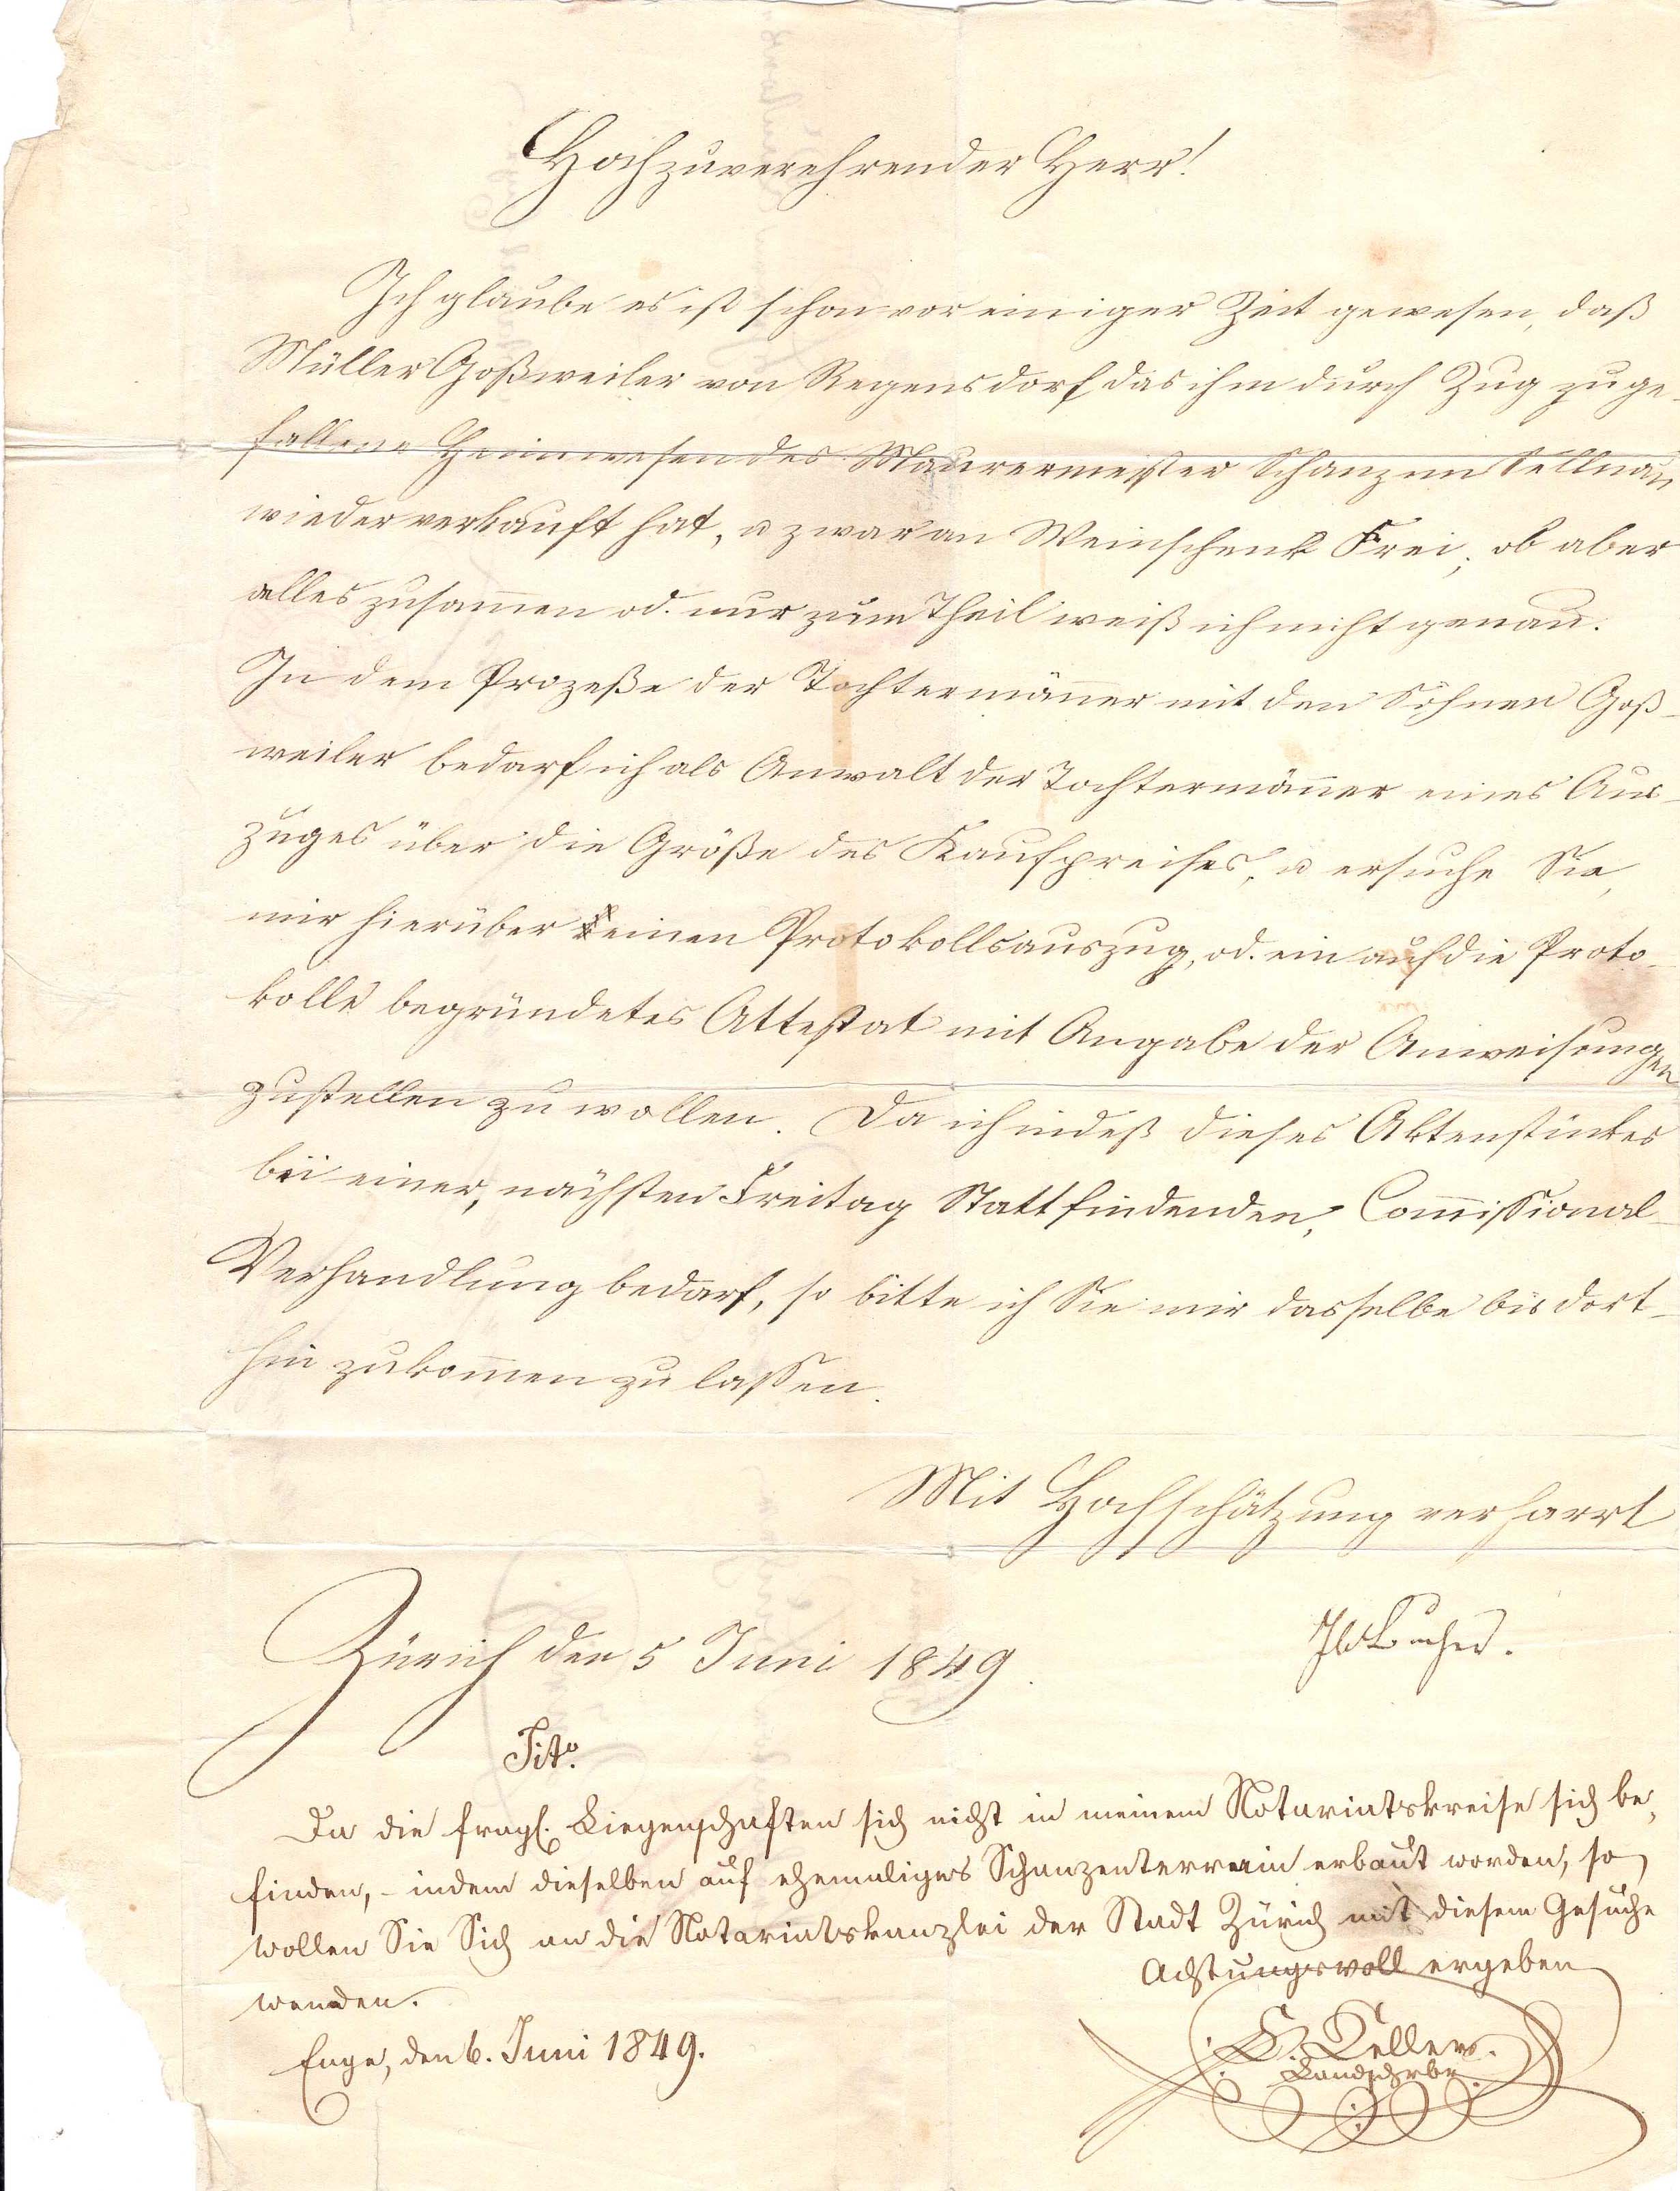 Hochzuverehrender Herr!
Ich glaube es ist schon vor einiger Zeit gewesen, daß
Müller Goßweiler von Regensdorf das ihm durch Zug zuge-
fallene Heimwesen des Maurermeister Schanz im Sellnau
wieder verkauft hat, u zwar an Weinschenk Frei; ob aber
alles zusam̄en od. nur zum Theil weiß ich nicht genau.
In dem Prozeße der Tochtermän̄er mit den Söhnen Goß-
weiler bedarf ich als Anwalt der Tochtermän̄er eines Aus-
zuges über die Größe des Kaufpreises, u ersuche Sie,
mir hierüber einen Protokollsauszug, od. ein auf die Proto-
kolle begründetes Attestat mit Angabe der Anweisungen
zustellen zu wollen. Da ich indeß dieses Aktenstückes
bei einer, nächsten Freitag Statt findenden, Com̄issional-
Verhandlung bedarf, so bitte ich Sie mir dasselbe bis dort-
hin zukom̄en zu lassen.
Mit Hochschätzung verharrt
Zürich den 5 Juni 1849.
Tit.
Da die fragl. Liegenschaften sich nicht in meinem Notariatskreise sich be,
finden, - indem dieselben auf ehemaliges Schanzenterrain erbaut worden, so
wollen Sie Sich an die Notariatskanzlei der Stadt Zürich mit diesem Gesuche
wenden.
Achtungsvoll ergeben
Enge, den 6. Juni 1849.
Keller.
Landschrbr.